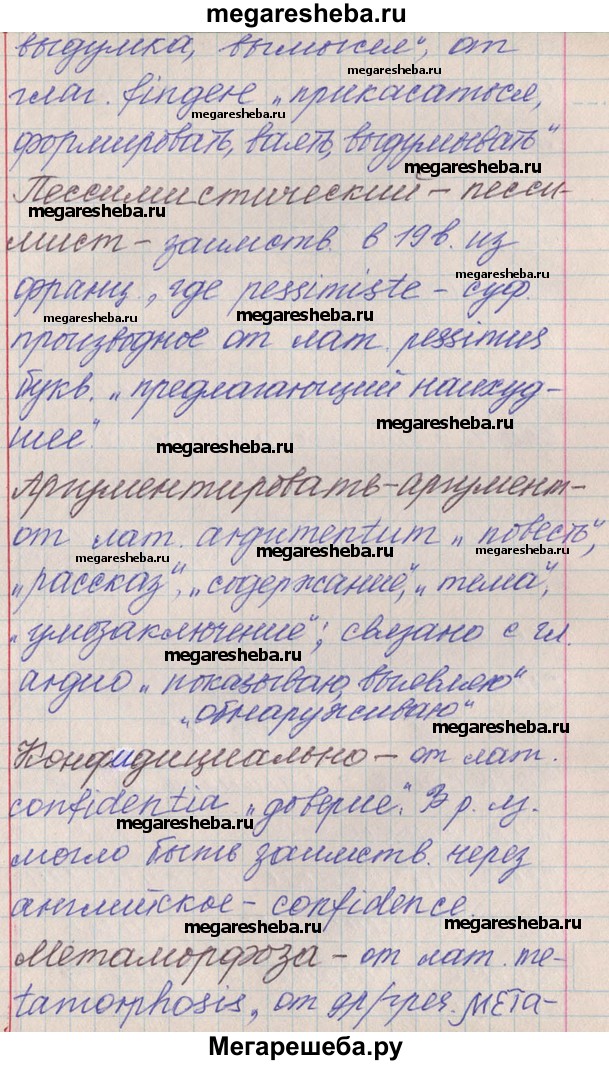 megaresheba.ru
выдумка, вымысел", от
megaresheba.ru
глаг. fingere „прикасаться,
megaresheba.ru
формировать, ваять, выдумывать"
megaresheba.ru
Пессимистический – песси-
megaresheba.ru
мист – заимств. в 19 в. из
megaresheba.ru
франц., где pessimiste – суф.
megaresheba.ru megaresheba.ru
производное от лат. pessimus
букв. „предлагающий наихуд-
megaresheba.ru
шее".
megaresheba.ru
Аргументировать – аргумент –
от лат. argumentum „повесть",
megaresheba.ru megaresheba.ru megaresheba.ru
„рассказ", „содержание", „тема",
„умозаключение"; связано с гл.
megaresheba.ru
аргио „показываю, выявляю"
„обнаруживаю"
megaresheba.ru
Конфидициально – от лат.
confidentia „доверие". В р. яз.
megaresheba.ru megaresheba.ru
могло быть заимств. через
английское – confidence.
megaresheba.ru
Метаморфоза – от лат. me-
megaresheba.ru
tamorphosis, от др/греч. μετα-
Мегарешеба.ру